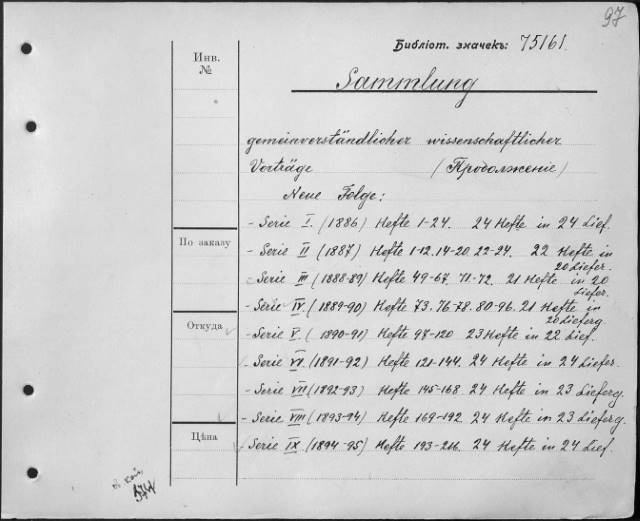 97
Библіот. значекъ: 75161.
Инв.
№
Sammlung
gemeinverständlicher wissenschaftlicher
Vorträge (Продолженіе)
Neue Folge:
- Serie I. (1886) Hefte 1-24. 24 Hefte in 24 Lief.
По заказу
- Serie II (1887) Hefte 1-12. 14-20. 22-24. 22 Hefte in
20 Liefer.
- Serie III (1888-89) Hefte 49-67. 71-72. 21 Hefte in 20
Liefer.
- Serie IV. (1889-90) Hefte 73. 76-78. 80-96. 21 Hefte in
20 Lieferg.
Откуда
- Serie V. (1890-91) Hefte 98-120 23 Hefte in 22 Lief.
- Serie VI. (1891-92) Hefte 121-144. 24 Hefte in 24 Liefer.
- Serie VII (1892-93) Hefte 145-168. 24 Hefte in 23 Lieferg.
- Serie VIII (1893-94) Hefte 169-192. 24 Hefte in 23 Lieferg.
Цѣна
- Serie IX (1894-95) Hefte 193-216. 24 Hefte in 24 Lief.